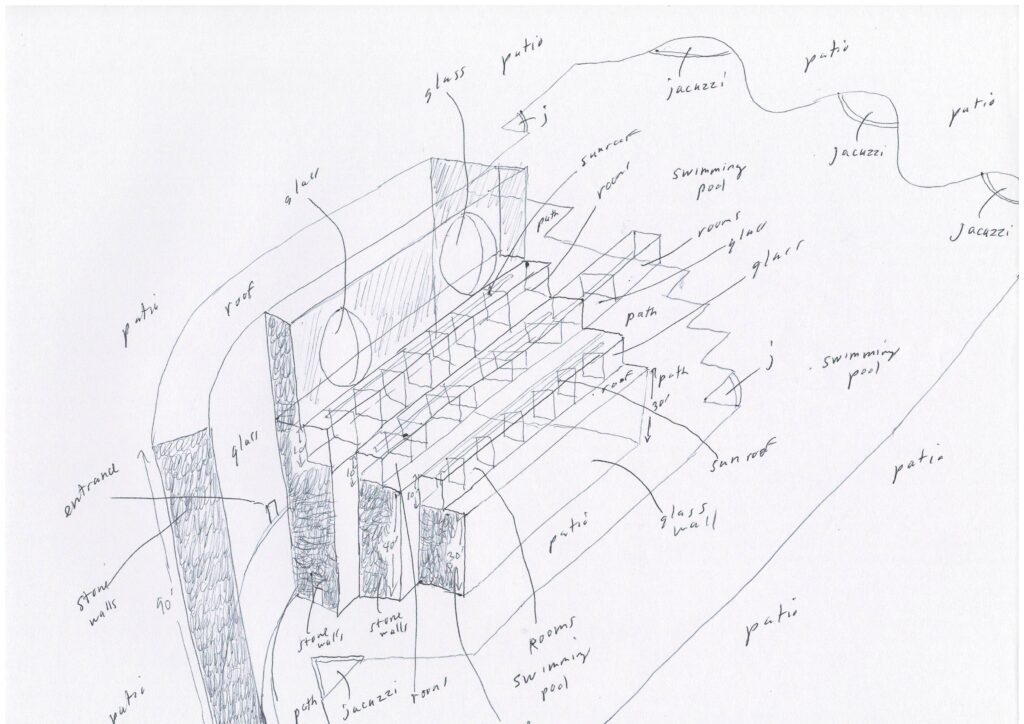 patio
patio
glass
jacuzzi
patio
j
Jacuzzi
sunroof
room
swimming
pool
glass
path
rooms
Jacuzzi
glass
patio
roof
path
swimming
pool
j
path
roof
30'
glass
sunroof
entrance
10'
10'
10'
patio
glass
wall
patio
40'
30'
stone
walls
90'
stone
walls
stone
walls
Rooms
swimming
pool
patio
patio
path
jacuzzi